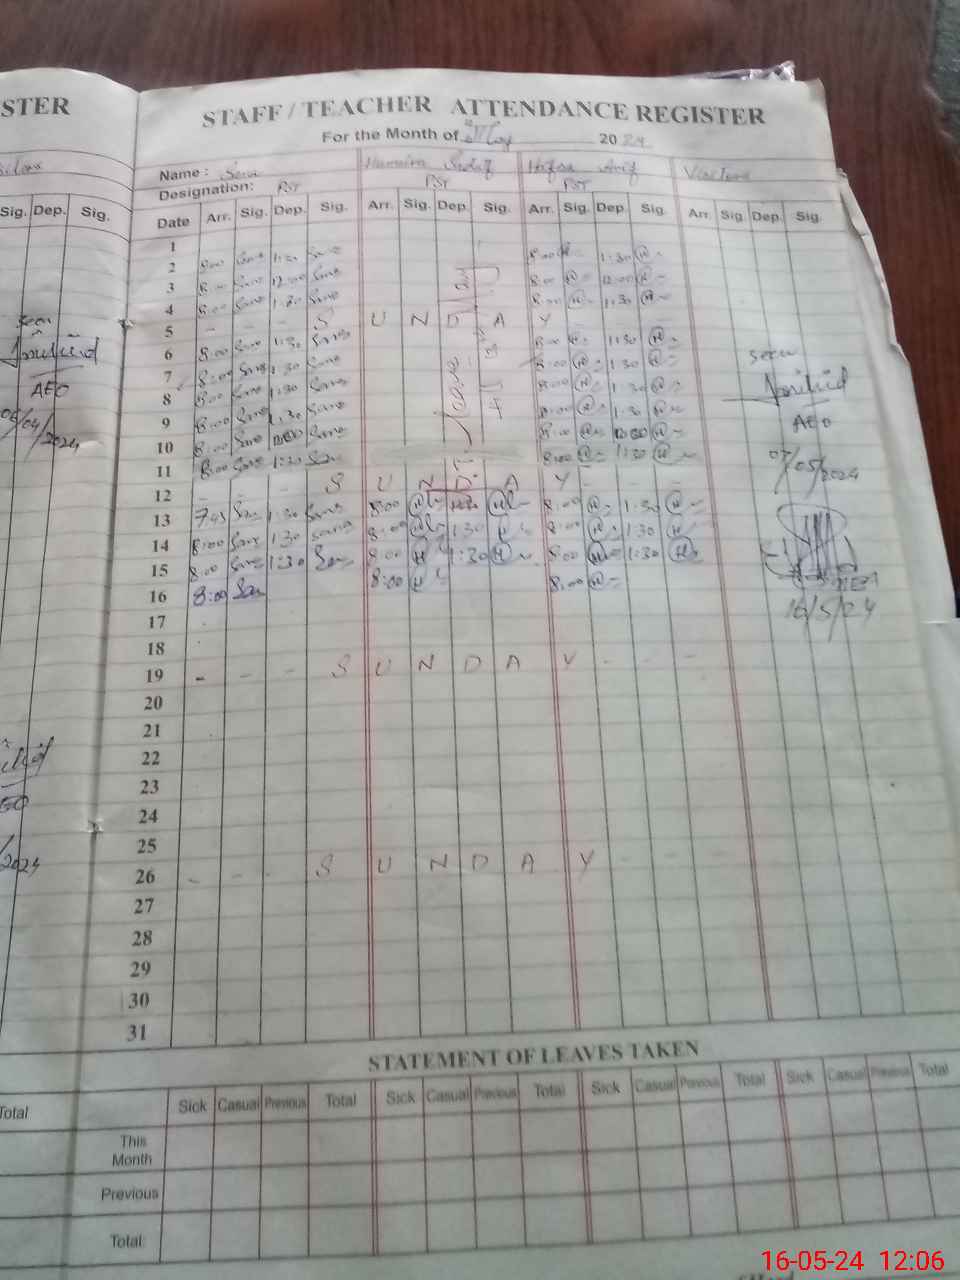 STER
STAFF / TEACHER ATTENDANCE REGISTER
For the Month of May 2024
Name : Sana Humaira Hafsa Arif Visitors
Designation: PST PST PST
Sig. Dep. Sig. Date Arr. Sig. Dep. Sig. Arr. Sig. Dep. Sig. Arr. Sig. Dep. Sig. Arr. Sig. Dep. Sig.
1
2 8:00 Sana 1:30 Sana 8:00 H 1:30 H
3 8:00 Sana 12:00 Sana 8:00 H 12:00 H
4 8:00 Sana 1:30 Sana 8:00 H 1:30 H
5 - - - S U N D A Y - - -
6 8:00 Sana 1:30 Sana 8:00 H 1:30 H
7 8:00 Sana 1:30 Sana 8:00 H 1:30 H
8 8:00 Sana 1:30 Sana 8:00 H 1:30 H
9 8:00 Sana 1:30 Sana 8:00 H 1:30 H
10 8:00 Sana Sana 8:00 H H
11 8:00 Sana 1:30 Sana 8:00 H 1:30 H
12 - - - S U N D A Y - - -
13 7:45 Sana 1:30 Sana 8:00 H H 8:00 H 1:30 H
14 8:00 Sana 1:30 Sana 8:00 H 1:30 H 8:00 H 1:30 H
15 8:00 Sana 1:30 Sana 8:00 H 1:30 H 8:00 H 1:30 H
16 8:00 Sana 8:00 H 8:00 H
17
18
19 - - - S U N D A Y - - -
20
21
22
23
24
25
26 - - - S U N D A Y - - -
27
28
29
30
31
seen
AEO
06/04/2024
seen
AEO
07/05/2024
16/5/24
/2024
STATEMENT OF LEAVES TAKEN
Total Sick Casual Previous Total Sick Casual Previous Total Sick Casual Previous Total Sick Casual Previous Total
This
Month
Previous
Total:
16-05-24 12:06